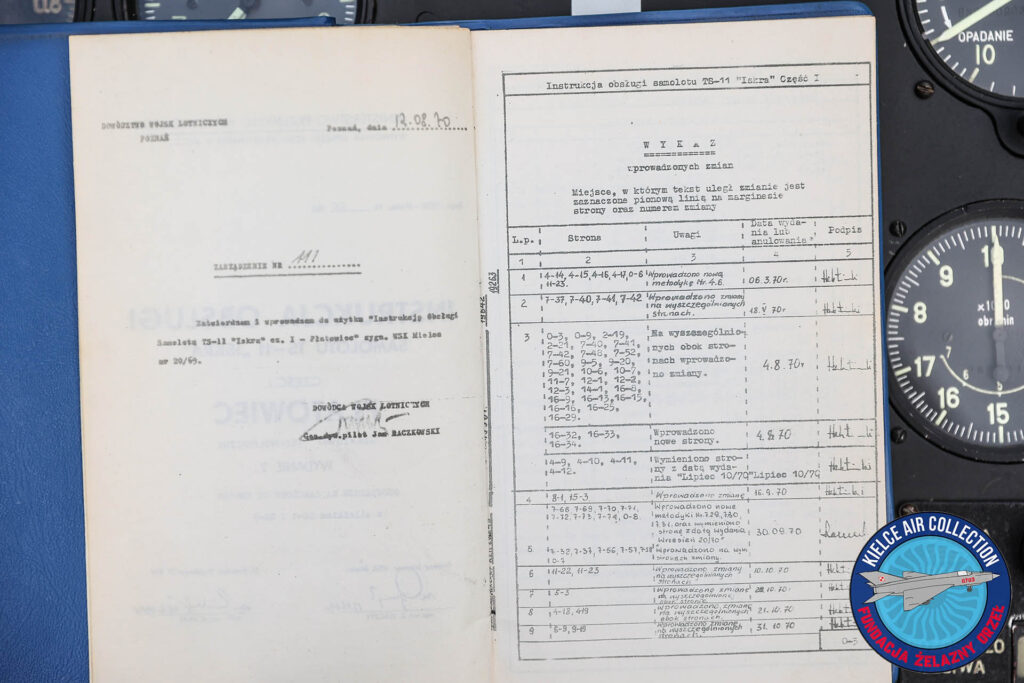 DOWÓDZTWO WOJSK LOTNICZYCH
POZNAŃ
Poznań, dnia 12.08.70
ZARZĄDZENIE NR 117
Zatwierdzam i wprowadzam do użytku "Instrukcję Obsługi
Samolotu TS-11 "Iskra" cz. I - Płatowiec" sygn. WSK Mielec
nr 20/69.
DOWÓDCA WOJSK LOTNICZYCH
Gen.dyw.pilot Jan RACZKOWSKI
Instrukcja obsługi samolotu TS-11 "Iskra" Część I
W Y K A Z
wprowadzonych zmian
Miejsce, w którym tekst uległ zmianie jest
zaznaczone pionową linią na marginesie
strony oraz numerem zmiany
L.p. Strona Uwagi Data wyda-
nia lub
anulowania Podpis
1 2 3 4 5
1 4-14, 4-15, 4-16, 4-17, 0-6 Wprowadzono nową 06.3.70r.
11-23. metodykę Nr. 4.6.
2 7-37, 7-40, 7-41, 7-42 Wprowadzono zmiany 18.V 70r
na wyszczególnionych
stronach.
3 0-3, 0-9, 2-19, Na wyszczególnio- 4.8.70r
2-21, 7-40, 7-41, nych obok stro-
7-42, 7-48, 7-52, nach wprowadzo-
7-60, 9-5, 9-20, no zmiany.
9-21, 10-6, 10-7,
11-7, 12-1, 12-2,
12-3, 14-1, 16-8,
16-9, 16-13, 16-15,
16-16, 16-25,
16-29.
16-32, 16-33, Wprowadzono 4.8.70
16-34. nowe strony.
4-9, 4-10, 4-11, Wymieniono stro-
4-12. ny z datą wyda-
nia "Lipiec 10/70" Lipiec 10/70
4 8-1, 15-3 Wprowadzono zmianę 16.9.70
7-68, 7-69, 7-70, 7-71, Wprowadzono nowe 30.09.70
7-72, 7-73, 7-74, 0-8. metodyki Nr 7.29, 7.30,
7.31. oraz wymieniono
stronę z datą wydania
Wrzesień 20/70"
5 7-32, 7-37, 7-56, 7-57, 7-58 Wprowadzono na wym
0-7 stronach zmiany.
6 11-22, 11-23 Wprowadzono zmiany 10.10.70
na wyszczególnionych
stronach
7 5-3 Wprowadzono zmianę 20.10.70
obok stronie
8 4-18, 419 Wprowadzono zmiany 21.10.70
na wyszczególnionych
obok stronach.
9 9-8, 9-19 Wprowadzono zmiany 31.10.70
na wyszczególnionych
stronach.
0-5
OPADANIE
10
10
9
8
7
x100
obr/min
5
6
20
19
18
17
16
15
KIELCE AIR COLLECTION
0703
FUNDACJA ŻELAZNY ORZEŁ